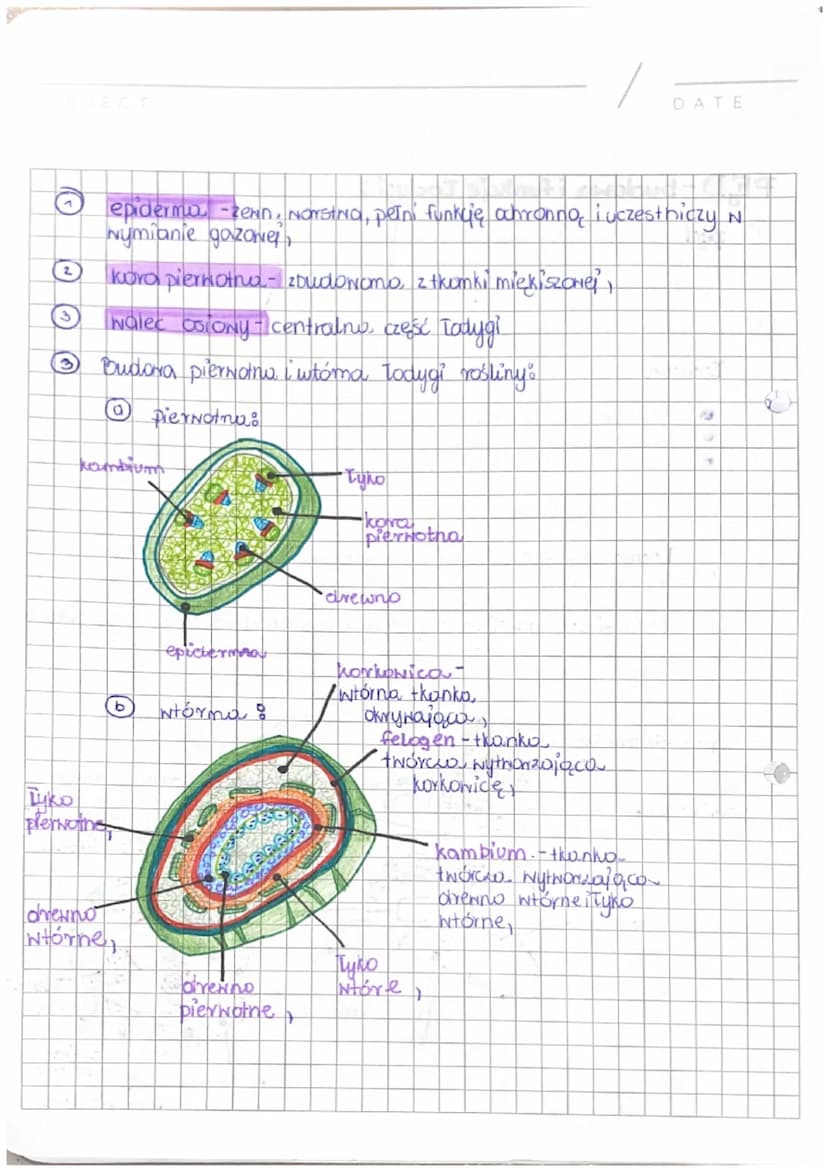 DATE
① epiderma - zewn. warstwa, pełni funkcję ochronną i uczestniczy w
wymianie gazowej,
② kora pierwotna - zbudowana z tkanki miękiszowej,
③ walec osiowy - centralna część łodygi
③ Budowa pierwotna i wtórna łodygi rośliny:
ⓐ pierwotna:
kambium
łyko
kora
pierwotna
drewno
epiderma
ⓑ wtórna:
korkowica -
wtórna tkanka
okrywająca,
felogen - tkanka
twórcza wytwarzająca
korkowicę,
łyko
pierwotne,
kambium. - tkanka
twórcza wytwarzająca
drewno wtórne i łyko
wtórne,
drewno
wtórne,
łyko
wtóre,
drewno
pierwotne,